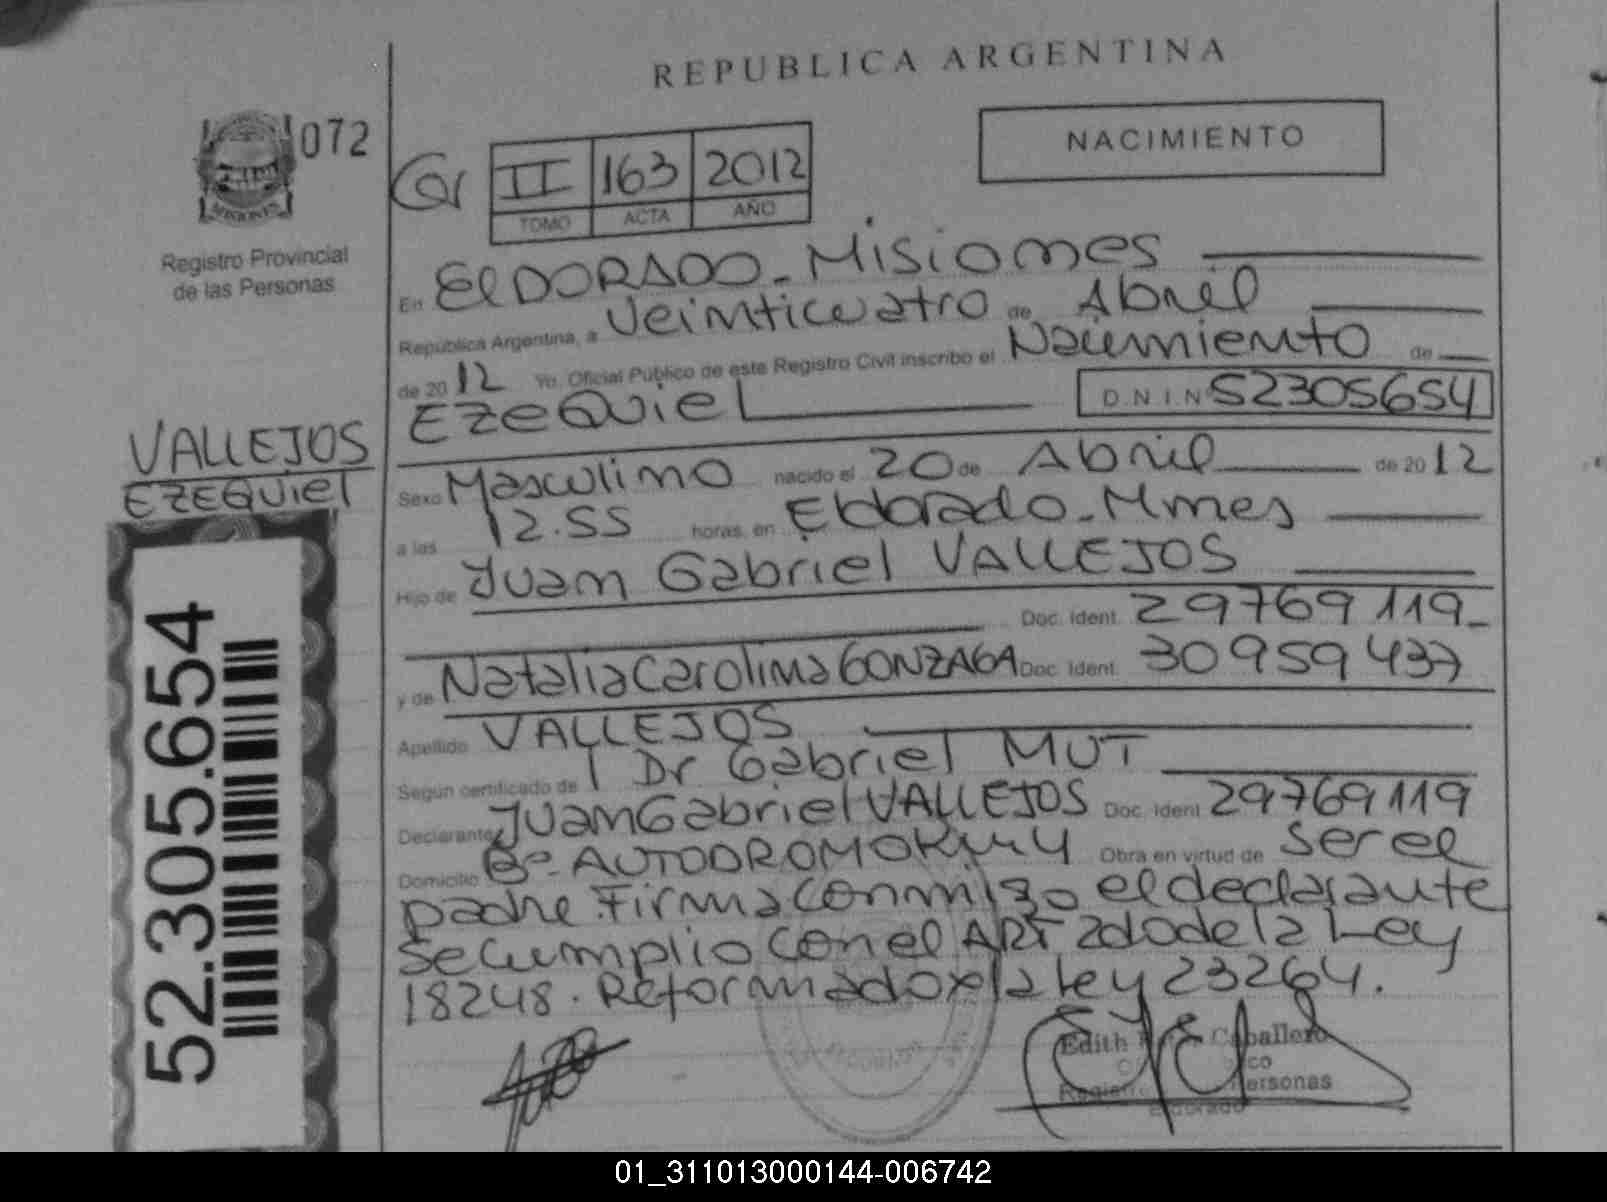 REPUBLICA ARGENTINA
072
MISIONES
Registro Provincial
de las Personas
NACIMIENTO
II 163 2012
TOMO ACTA AÑO
En ElDORADO - Misiones
República Argentina, a Veinticuatro de Abril
de 2012 Yo, Oficial Público de este Registro Civil inscribo el Nacimiento de
EZEQUiEL D.N.I.Nº 52305654
VALLEJOS
EZEQUiel
Sexo Masculino nacido el 20 de Abril de 2012
a las 12.55 horas, en Eldorado - Mnes
Hijo de Juan Gabriel VALLEJOS
Doc. Ident. 29769119
y de Natalia Carolina GONZAGA Doc. Ident. 30959437
Apellido VALLEJOS
Según certificado de l Dr Gabriel MUT
Declarante Juan Gabriel VALLEJOS Doc. Ident 29769119
Domicilio Bº AUTODROMO Obra en virtud de Ser el
padre. Firma conmigo el declarante
Se cumplio con el ART 2do de la Ley
18248. Reformado x la Ley 23264.
52.305.654
Edith Caballero
Registro Personas
Eldorado
01_311013000144-006742